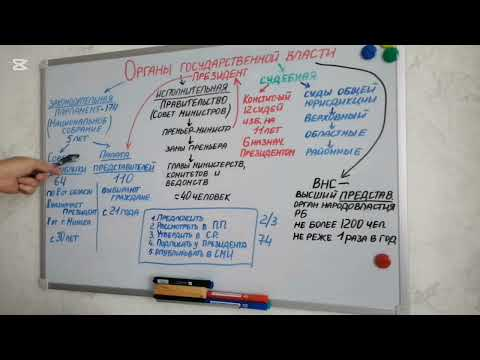 Органы государственной власти
Президент
Законодательная
парламент-174
(Национальное
собрание)
5 лет
Палата
представителей
64
по 8 от области
8 назначает
президент
8 от г. Минска
с 30 лет
110
выбирают
граждане
с 21 года
Исполнительная
Правительство
(Совет Министров)
премьер-министр
замы премьера
главы министерств,
комитетов и
ведомств
≈ 40 человек
судебная
Конститу-й
12 судей
изб. на
11 лет
6 назнач.
Президентом
суды общей
юрисдикции
Верховный
областные
районные
ВНС –
высший представ.
орган народовластия
РБ
не более 1200 чел.
не реже 1 раза в год
1. Предложить
2. Рассмотреть в П.П.
3. Утвердить в С.Р.
4. Подписать у президента
5. Опубликовать в СМИ
2/3
74